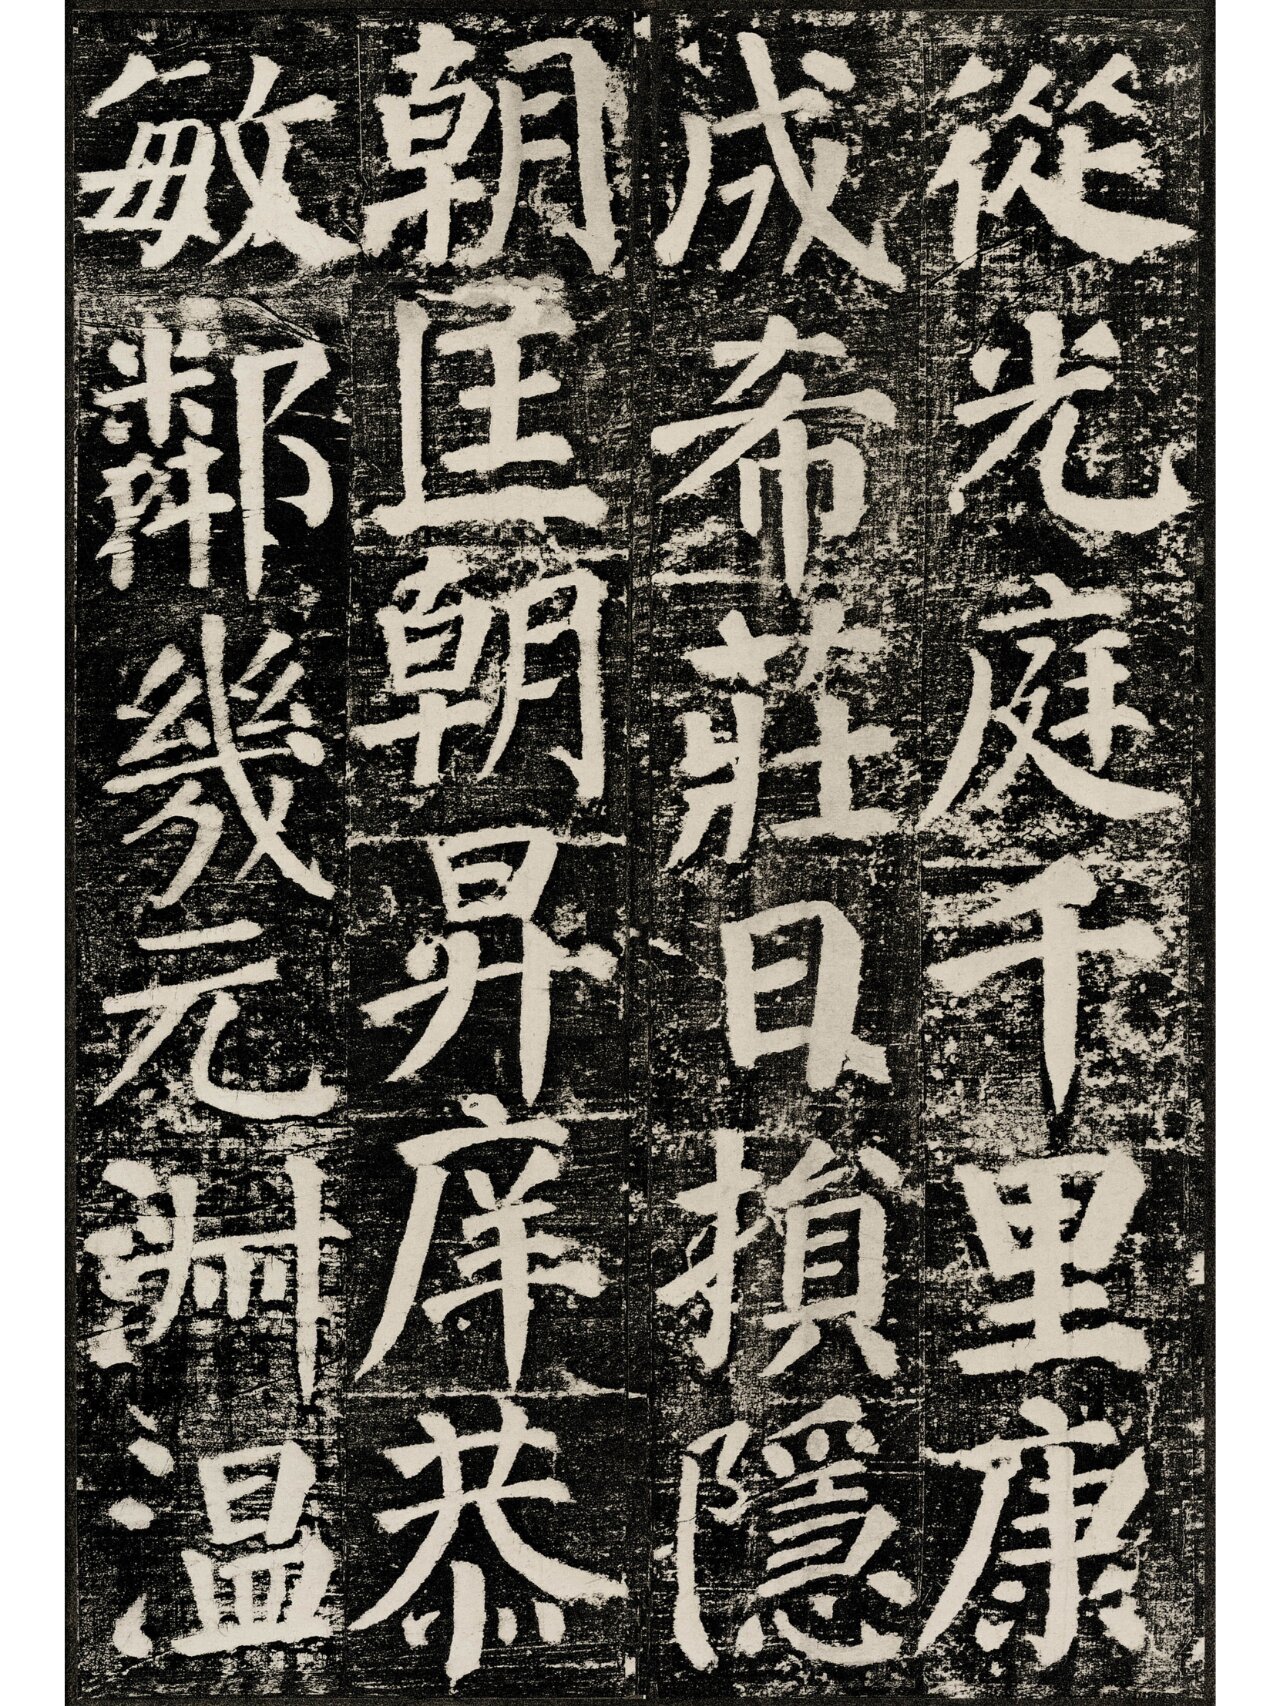 從光庭千里康
成希莊日損隱
朝匡朝昇庠恭
敏鄰幾元淵溫